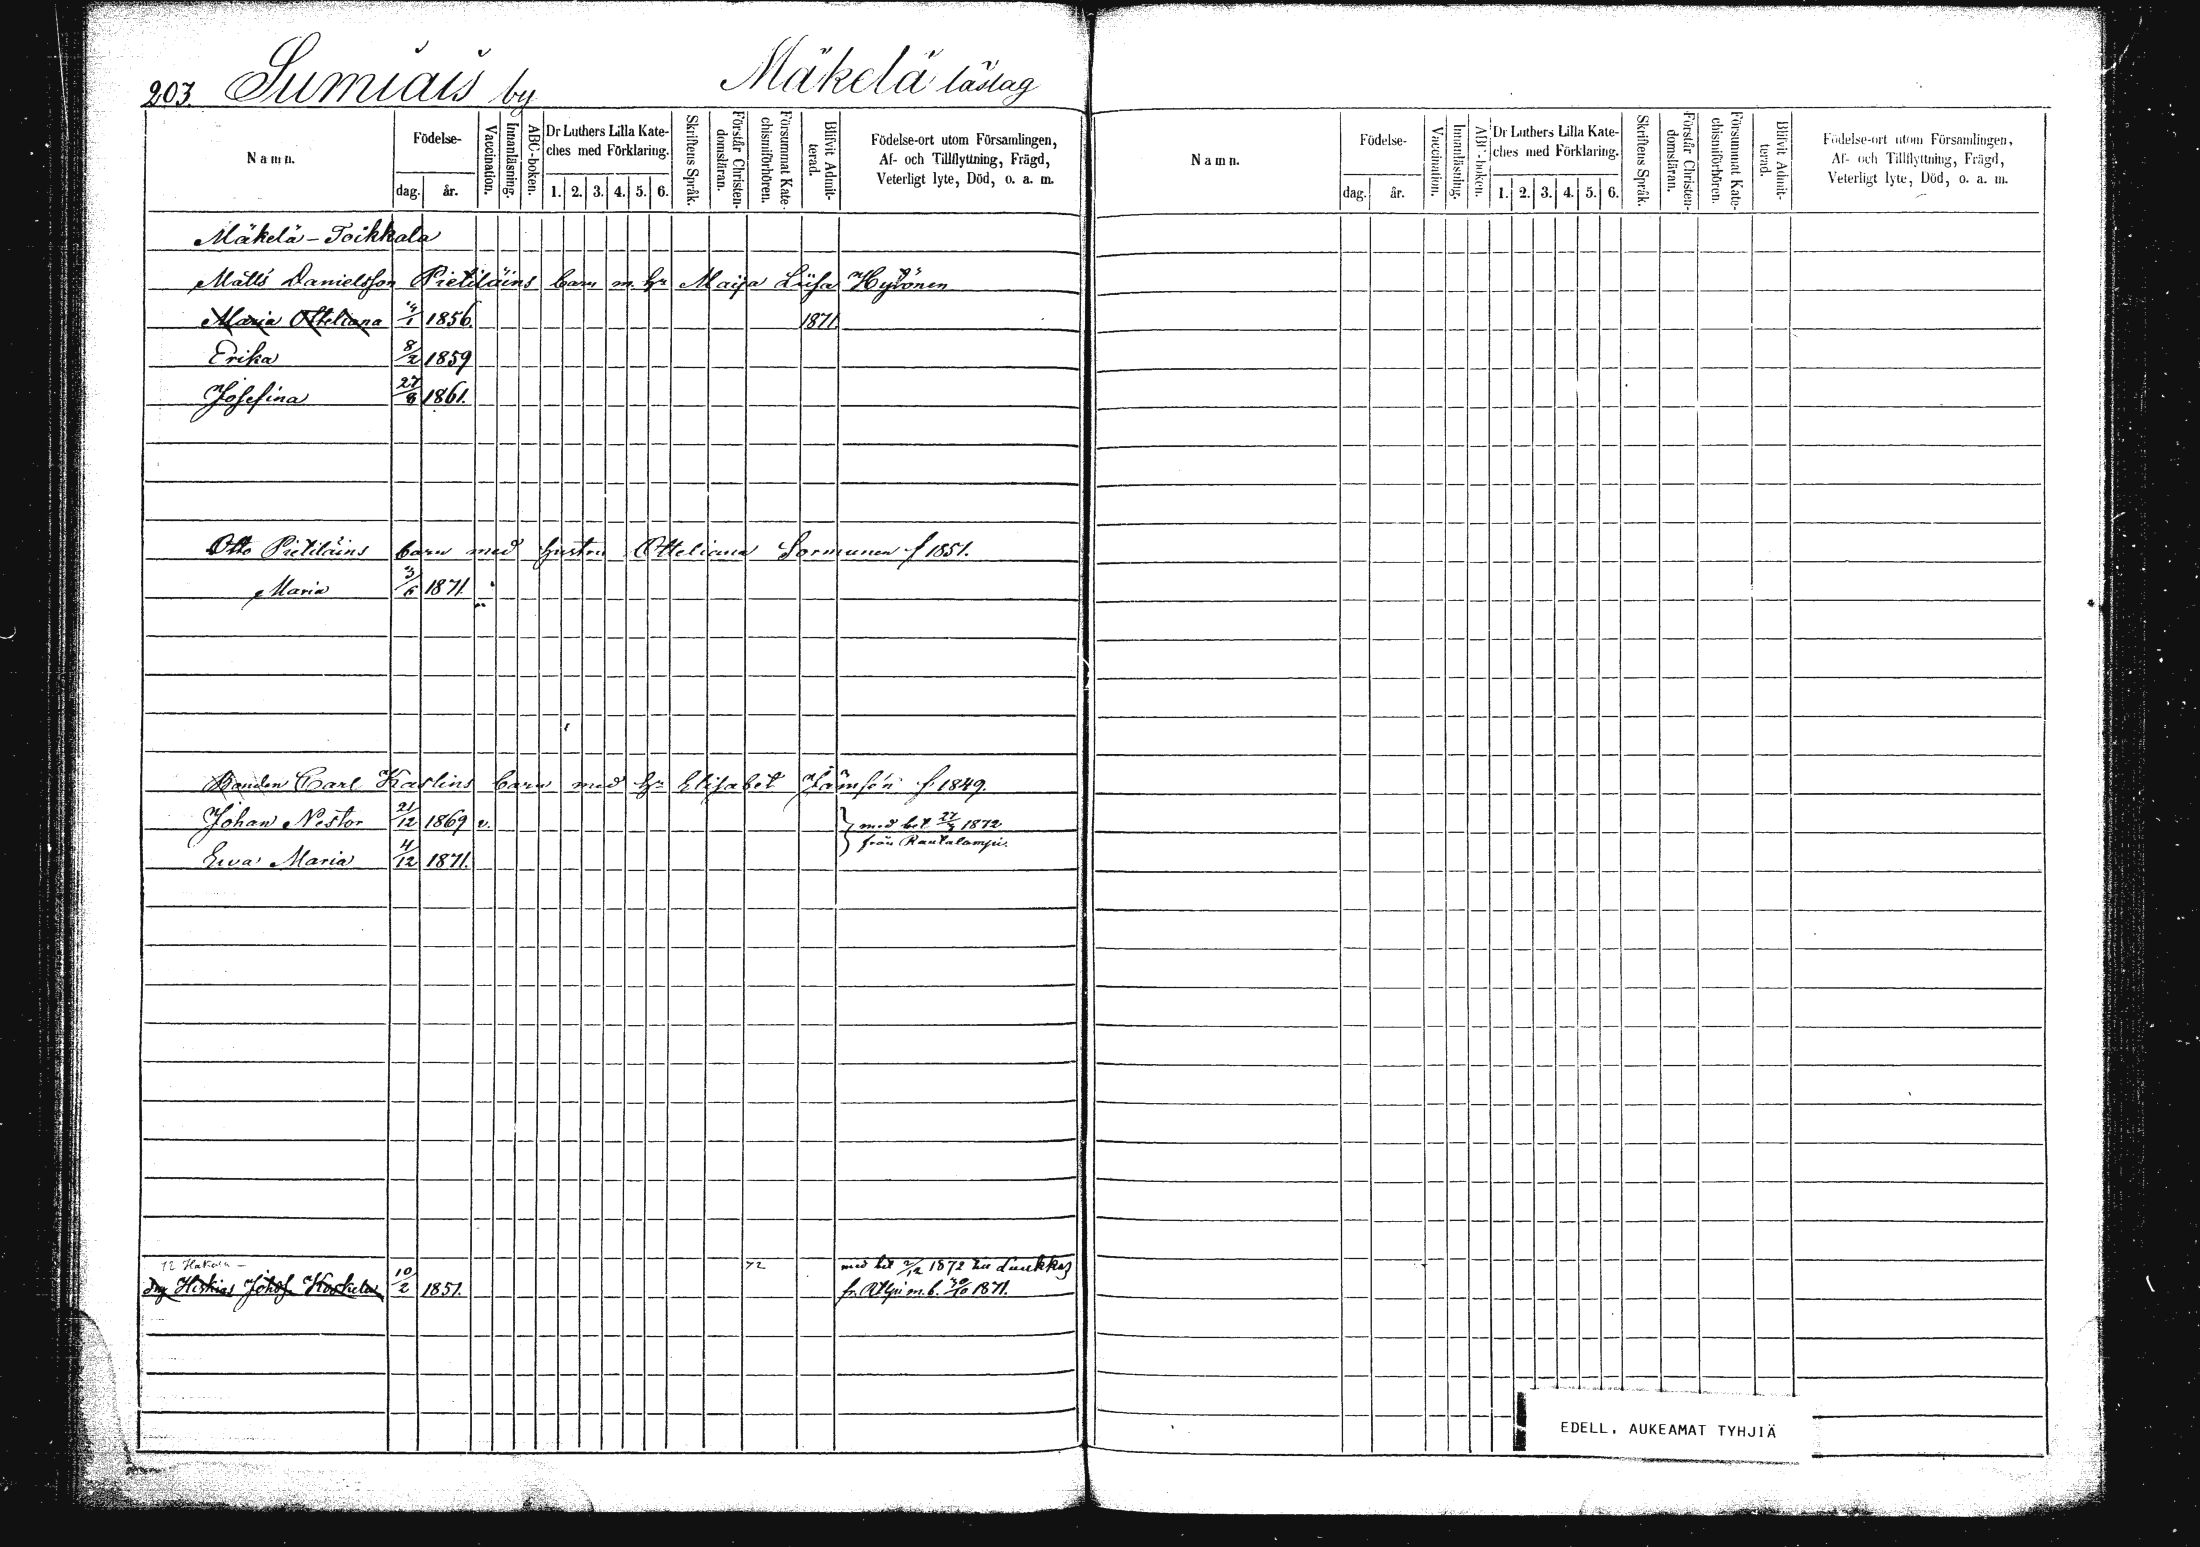 203. Sumiais by Mäkelä läslag
Namn. Födelse- dag. år. Vaccination. Innanläsning. ABC-boken. Dr Luthers Lilla Kateches med Förklaring. 1. 2. 3. 4. 5. 6. Skriftens Språk. Förstår Christendomsläran. Försummat Katechismiförhören. Blifvit Admitterad. Födelse-ort utom Församlingen, Af- och Tillflyttning, Frägd, Veterligt lyte, Död, o. a. m.
Mäkelä-Toikkala
Matts Danielsson Pietiläins barn m. hr Maija Liisa Hytönen
Maria Otteliana 1856. 1871.
Erika 8/2 1859
Josefina 27/8 1861.
Otto Pietiläins barn med hustru Otteliana Sormunen f 1851.
Maria 3/6 1871.
Bonden Carl Kaslins barn med hr Elisabet Jämsén f 1849.
Johan Nestor 21/12 1869 v. med bet 1872
från Rautalampi.
Ewa Maria 4/12 1871.
12 Hakala -
72 med bet 2/12 1872 till
Drg Hiskias Johs. Koskelas 10/2 1851. fr. m. b. 30/10 1871.
Namn. Födelse- dag. år. Vaccination. Innanläsning. ABC-boken. Dr Luthers Lilla Kateches med Förklaring. 1. 2. 3. 4. 5. 6. Skriftens Språk. Förstår Christendomsläran. Försummat Katechismiförhören. Blifvit Admitterad. Födelse-ort utom Församlingen, Af- och Tillflyttning, Frägd, Veterligt lyte, Död, o. a. m.
EDELL. AUKEAMAT TYHJIÄ